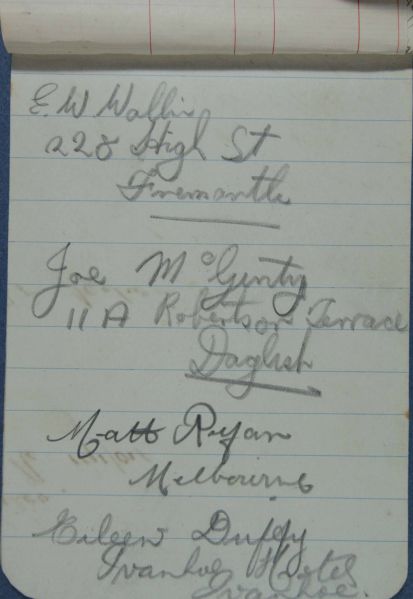 E. W Wallis
228 High St
Fremantle
Joe McGinty
11A Robertson Terrace
Daglish
Matt Ryan
Melbourne
Eileen Duffy
Ivanhoe Hotel
Ivanhoe.